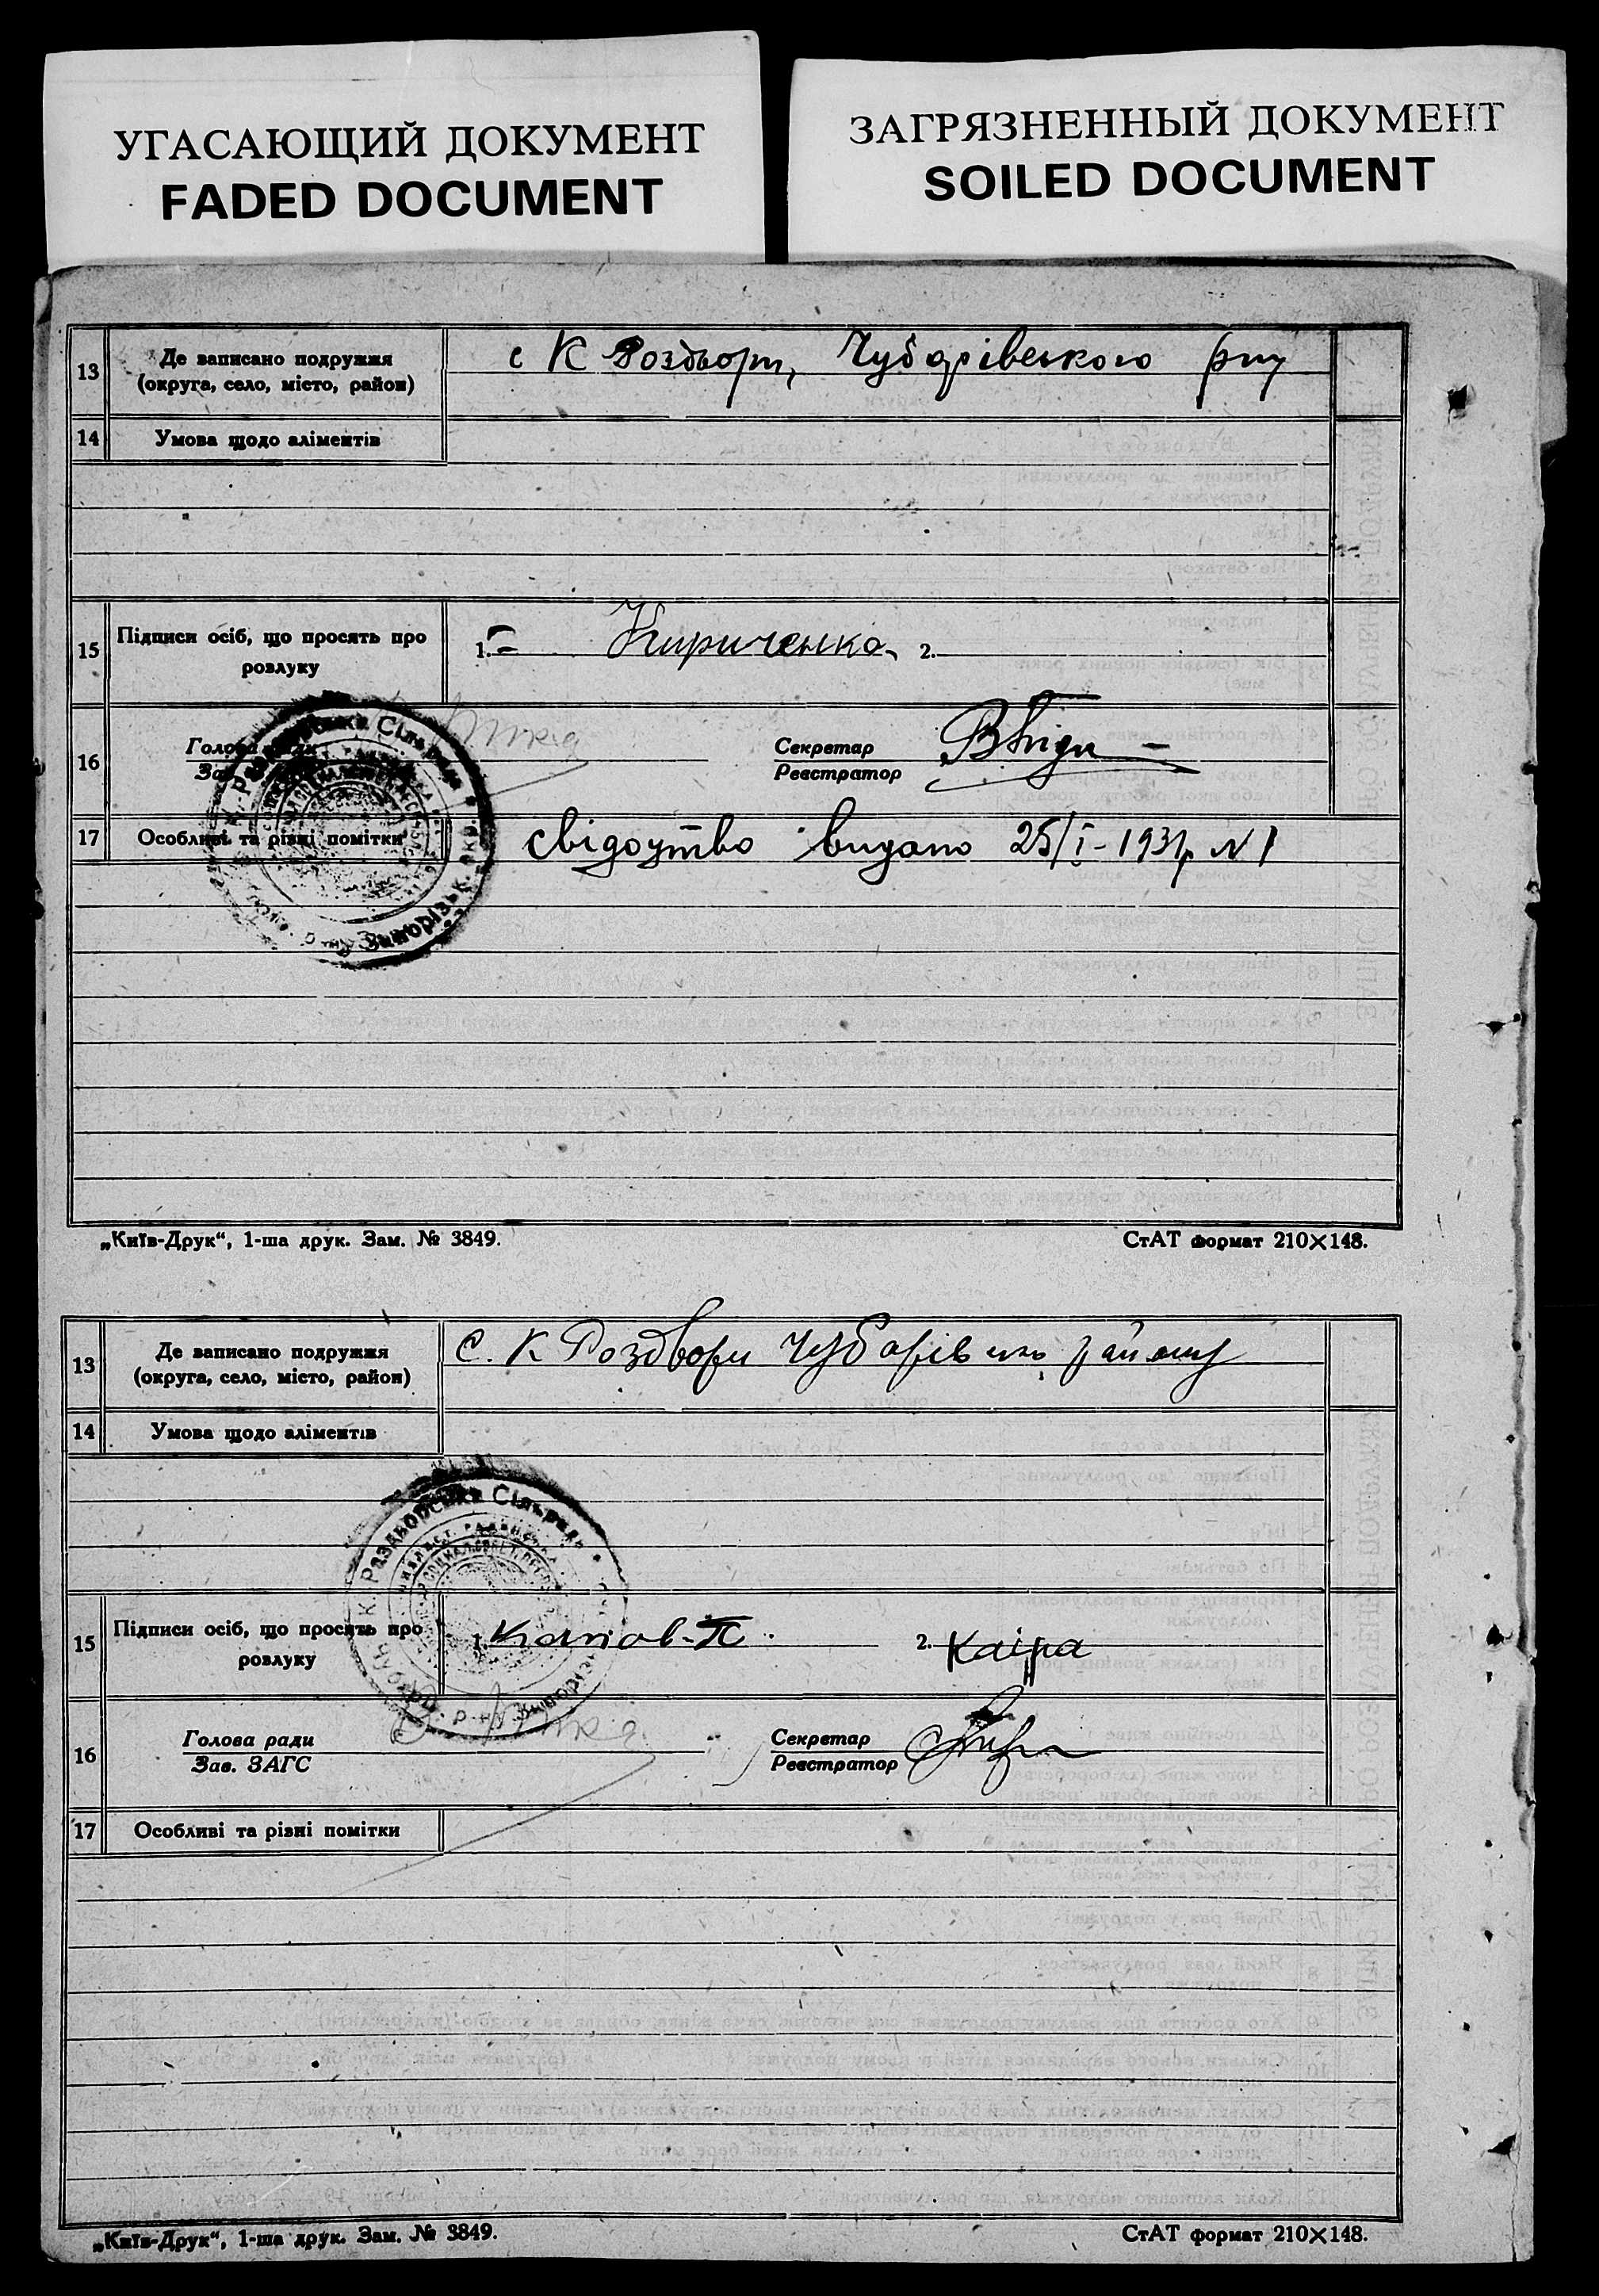 УГАСАЮЩИЙ ДОКУМЕНТ
FADED DOCUMENT
ЗАГРЯЗНЕННЫЙ ДОКУМЕНТ
SOILED DOCUMENT
13 Де записано подружжя
(округа, село, місто, район)
с К Роздори, Чубарівського р-ну
14 Умова щодо аліментів
15 Підписи осіб, що просять про
розлуку
1. Кириченко 2.
16 Голова
Зав.
Секретар
Реєстратор
17 Особливі та різні помітки
свідоцтво видано 25/I-1931р N 1
„Київ-Друк“, 1-ша друк. Зам. № 3849.
СтАТ формат 210×148.
13 Де записано подружжя
(округа, село, місто, район)
С. К Роздори Чубарівськ району
14 Умова щодо аліментів
К. Раздборська Сільрада
15 Підписи осіб, що просять про
розлуку
1. 2.
16 Голова ради
Зав. ЗАГС
Секретар
Реєстратор
17 Особливі та різні помітки
„Київ-Друк“, 1-ша друк. Зам. № 3849.
СтАТ формат 210×148.